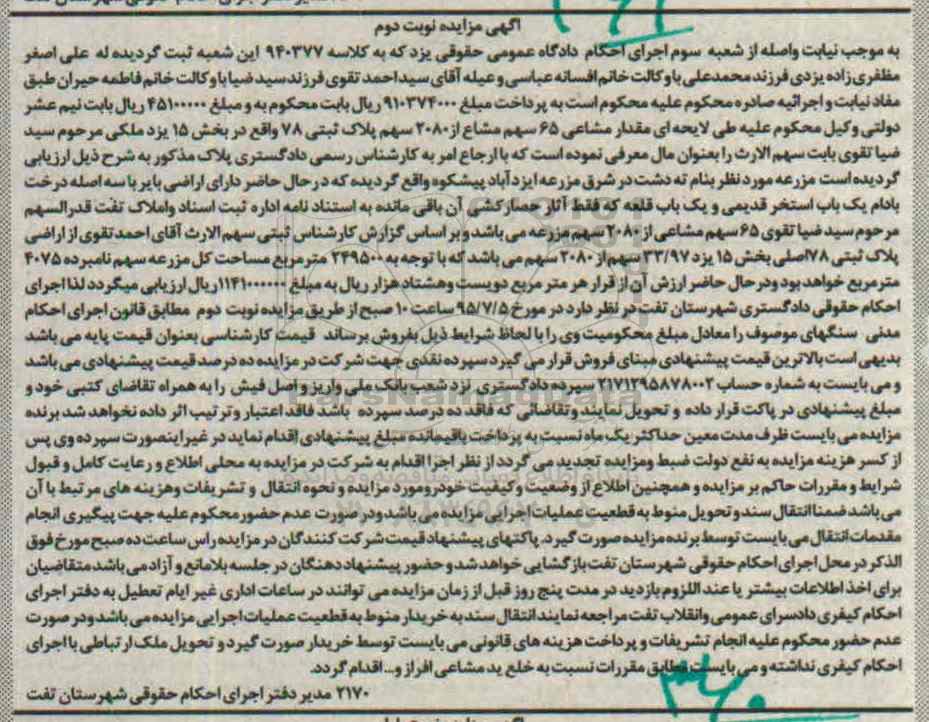 آگهی مزایده نوبت دوم
به موجب نیابت واصله از شعبه سوم اجرای احکام دادگاه عمومی حقوقی یزد که به کلاسه ۹۴۰۳۷۷ این شعبه ثبت گردیده له علی اصغر
مظفری زاده یزدی فرزند محمدعلی با وکالت خانم افسانه عباسی و عیله آقای سید احمد تقوی فرزند سید ضیا با وکالت خانم فاطمه حیران طبق
مفاد نیابت و اجرائیه صادره محکوم علیه محکوم است به پرداخت مبلغ ۹۱۰۳۷۴۰۰۰ ریال بابت محکوم به و مبلغ ۴۵۱۰۰۰۰۰ ریال بابت نیم عشر
دولتی وکیل محکوم علیه طی لایحه ای مقدار مشاعی ۶۵ سهم مشاع از ۲۰۸۰ سهم پلاک ثبتی ۷۸ واقع در بخش ۱۵ یزد ملکی مرحوم سید
ضیا تقوی بابت سهم الارث را بعنوان مال معرفی نموده است که با ارجاع امر به کارشناس رسمی دادگستری پلاک مذکور به شرح ذیل ارزیابی
گردیده است مزرعه مورد نظر بنام ته دشت در شرق مزرعه ایزد آباد پیشکوه واقع گردیده که در حال حاضر دارای اراضی بایر با سه اصله درخت
بادام یک باب استخر قدیمی و یک باب قلعه که فقط آثار حصارکشی آن باقی مانده به استناد نامه اداره ثبت اسناد واملاک تفت قدرالسهم
مرحوم سید ضیا تقوی ۶۵ سهم مشاعی از ۲۰۸۰ سهم مزرعه می باشد و بر اساس گزارش کارشناس ثبتی سهم الارث آقای احمد تقوی از اراضی
پلاک ثبتی ۷۸اصلی بخش ۱۵ یزد ۳۳/۹۷ سهم از ۲۰۸۰ سهم می باشد که با توجه به ۲۴۹۵۰۰ مترمربع مساحت کل مزرعه سهم نامبرده ۴۰۷۵
مترمربع خواهد بود ودرحال حاضر ارزش آن از قرار هر متر مربع دویست وهشتاد هزار ریال به مبلغ ۱۱۴۱۰۰۰۰۰۰ ریال ارزیابی میگردد لذا اجرای
احکام حقوقی دادگستری شهرستان تفت در نظر دارد در مورخ ۹۵/۷/۵ ساعت ۱۰ صبح از طریق مزایده نوبت دوم مطابق قانون اجرای احکام
مدنی سنگهای موصوف را معادل مبلغ محکومیت وی را با لحاظ شرایط ذیل بفروش برساند قیمت کارشناسی بعنوان قیمت پایه می باشد
بدیهی است بالاترین قیمت پیشنهادی مبنای فروش قرار می گیرد سپرده نقدی جهت شرکت در مزایده ده درصد قیمت پیشنهادی می باشد
و می بایست به شماره حساب ۲۱۷۱۲۹۵۸۷۸۰۰۲ سپرده دادگستری نزد شعب بانک ملی واریز و اصل فیش را به همراه تقاضای کتبی خود و
مبلغ پیشنهادی در پاکت قرار داده و تحویل نمایند وتقاضائی که فاقد ده درصد سپرده باشد فاقد اعتبار وترتیب اثر داده نخواهد شد برنده
مزایده می بایست ظرف مدت معین حداکثر یک ماه نسبت به پرداخت باقیمانده مبلغ پیشنهادی اقدام نماید در غیر اینصورت سپرده وی پس
از کسر هزینه مزایده به نفع دولت ضبط ومزایده تجدید می گردد از نظر اجرا اقدام به شرکت در مزایده به محلی اطلاع و رعایت کامل و قبول
شرایط و مقررات حاکم بر مزایده و همچنین اطلاع از وضعیت وکیفیت خودرومورد مزایده و نحوه انتقال و تشریفات وهزینه های مرتبط با آن
می باشد ضمنا انتقال سند و تحویل منوط به قطعیت عملیات اجرایی مزایده می باشد ودر صورت عدم حضور محکوم علیه جهت پیگیری انجام
مقدمات انتقال می بایست توسط برنده مزایده صورت گیرد. پاکتهای پیشنهاد قیمت شرکت کنندگان در مزایده راس ساعت ده صبح مورخ فوق
الذکر در محل اجرای احکام حقوقی شهرستان تفت بازگشایی خواهد شد و حضور پیشنهاد دهندگان در جلسه بلامانع و آزاد می باشد متقاضیان
برای اخذ اطلاعات بیشتر یا عند اللزوم بازدید در مدت پنج روز قبل از زمان مزایده می توانند در ساعات اداری غیر ایام تعطیل به دفتر اجرای
احکام کیفری دادسرای عمومی وانقلاب تفت مراجعه نمایند انتقال سند به خریدار منوط به قطعیت عملیات اجرایی مزایده می باشد ودر صورت
عدم حضور محکوم علیه انجام تشریفات و پرداخت هزینه های قانونی می بایست توسط خریدار صورت گیرد و تحویل ملک ارتباطی با اجرای
احکام کیفری نداشته و می بایست مطابق مقررات نسبت به خلع ید مشاعی افراز و... اقدام گردد.
۲۱۷۰ مدیر دفتر اجرای احکام حقوقی شهرستان تفت